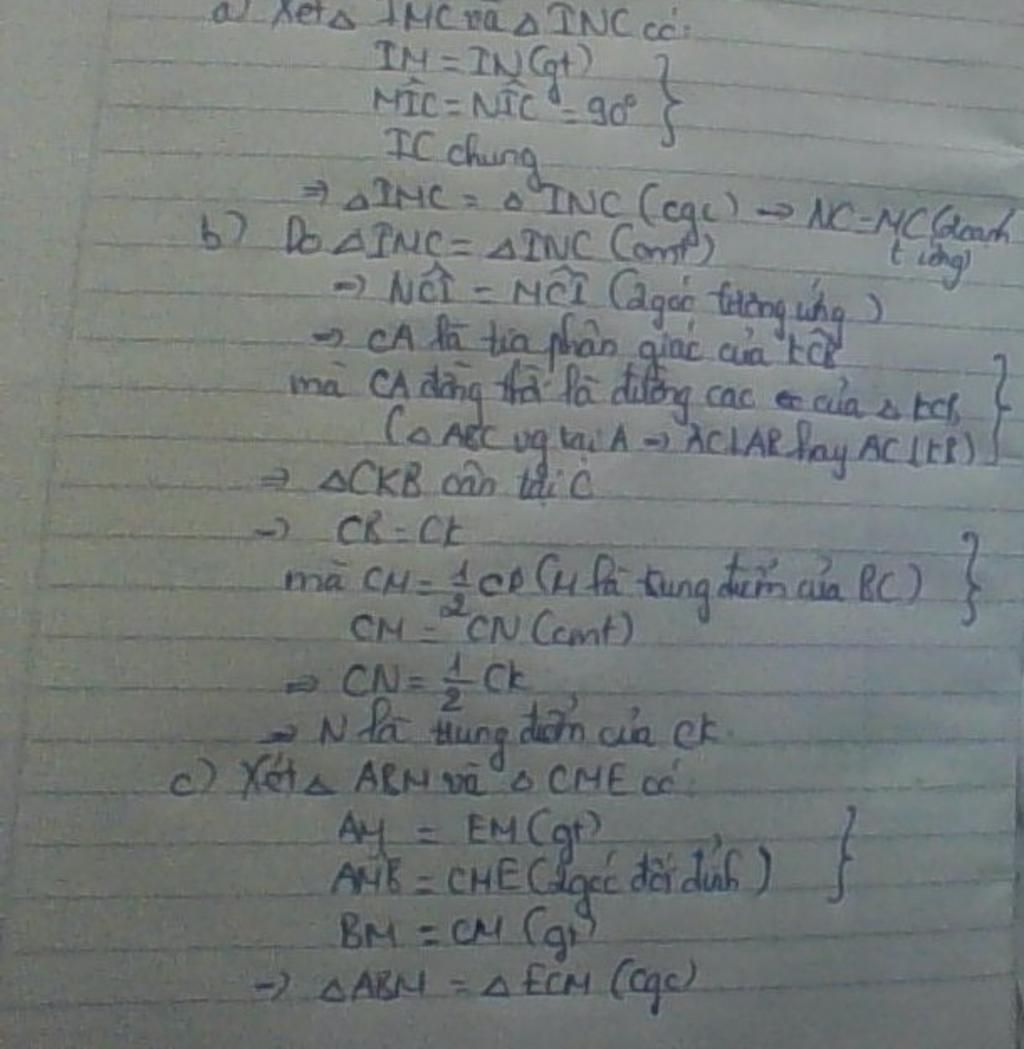 a) Xét △ IMC và △ INC có:
IM = IN (gt)
MÎC = NÎC = 90°
IC chung
⇒ △IMC = △ INC (cgc) → NC = MC (2 cạnh
t ứng)
b) Do △IMC = △INC (cmt)
⇒ NĈI = MĈI (2 góc tương ứng)
⇒ CA là tia phân giác của KĈB
mà CA đồng thời là đường cao của △ KCB
(△ ABC vg tại A → AC⊥AB hay AC⊥KB)
⇒ △CKB cân tại C
→ CB = CK
mà CM = 1/2 CB (M là trung điểm của BC)
CM = CN (cmt)
⇒ CN = 1/2 CK
⇒ N là trung điểm của CK.
c) Xét △ ABM và △ CME có:
AM = EM (gt)
AMB = CME (2 góc đối đỉnh)
BM = CM (gt)
→ △ABM = △ECM (cgc)